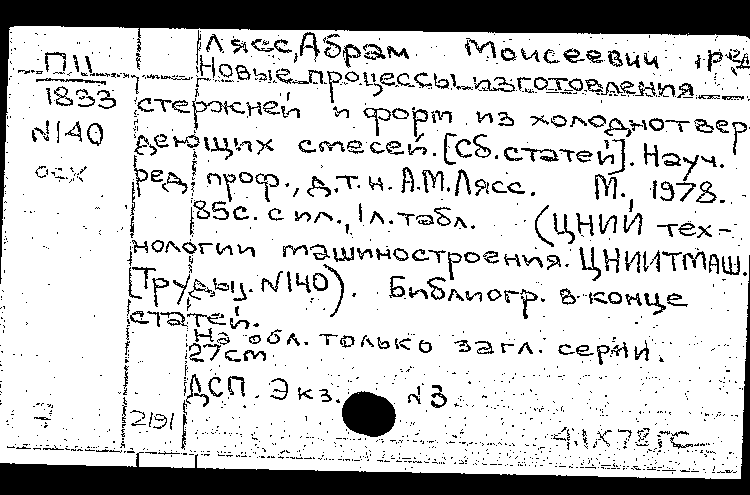 Лясс, Абрам Моисеевич, ред.
П11
Новые процессы изготовления
1833
стержней и форм из холоднотвер-
N140
деющих смесей. [Сб. статей]. Науч.
осх
ред. проф., д.т.н. А.М. Лясс. М., 1978.
85с. с ил., 1л. табл. (ЦНИИ тех-
нологии машиностроения. ЦНИИТМАШ.
[Труды]. N140). Библиогр. в конце
статей.
На обл. только загл. серии.
27см
ДСП. Экз. N3
2191
4.IX78